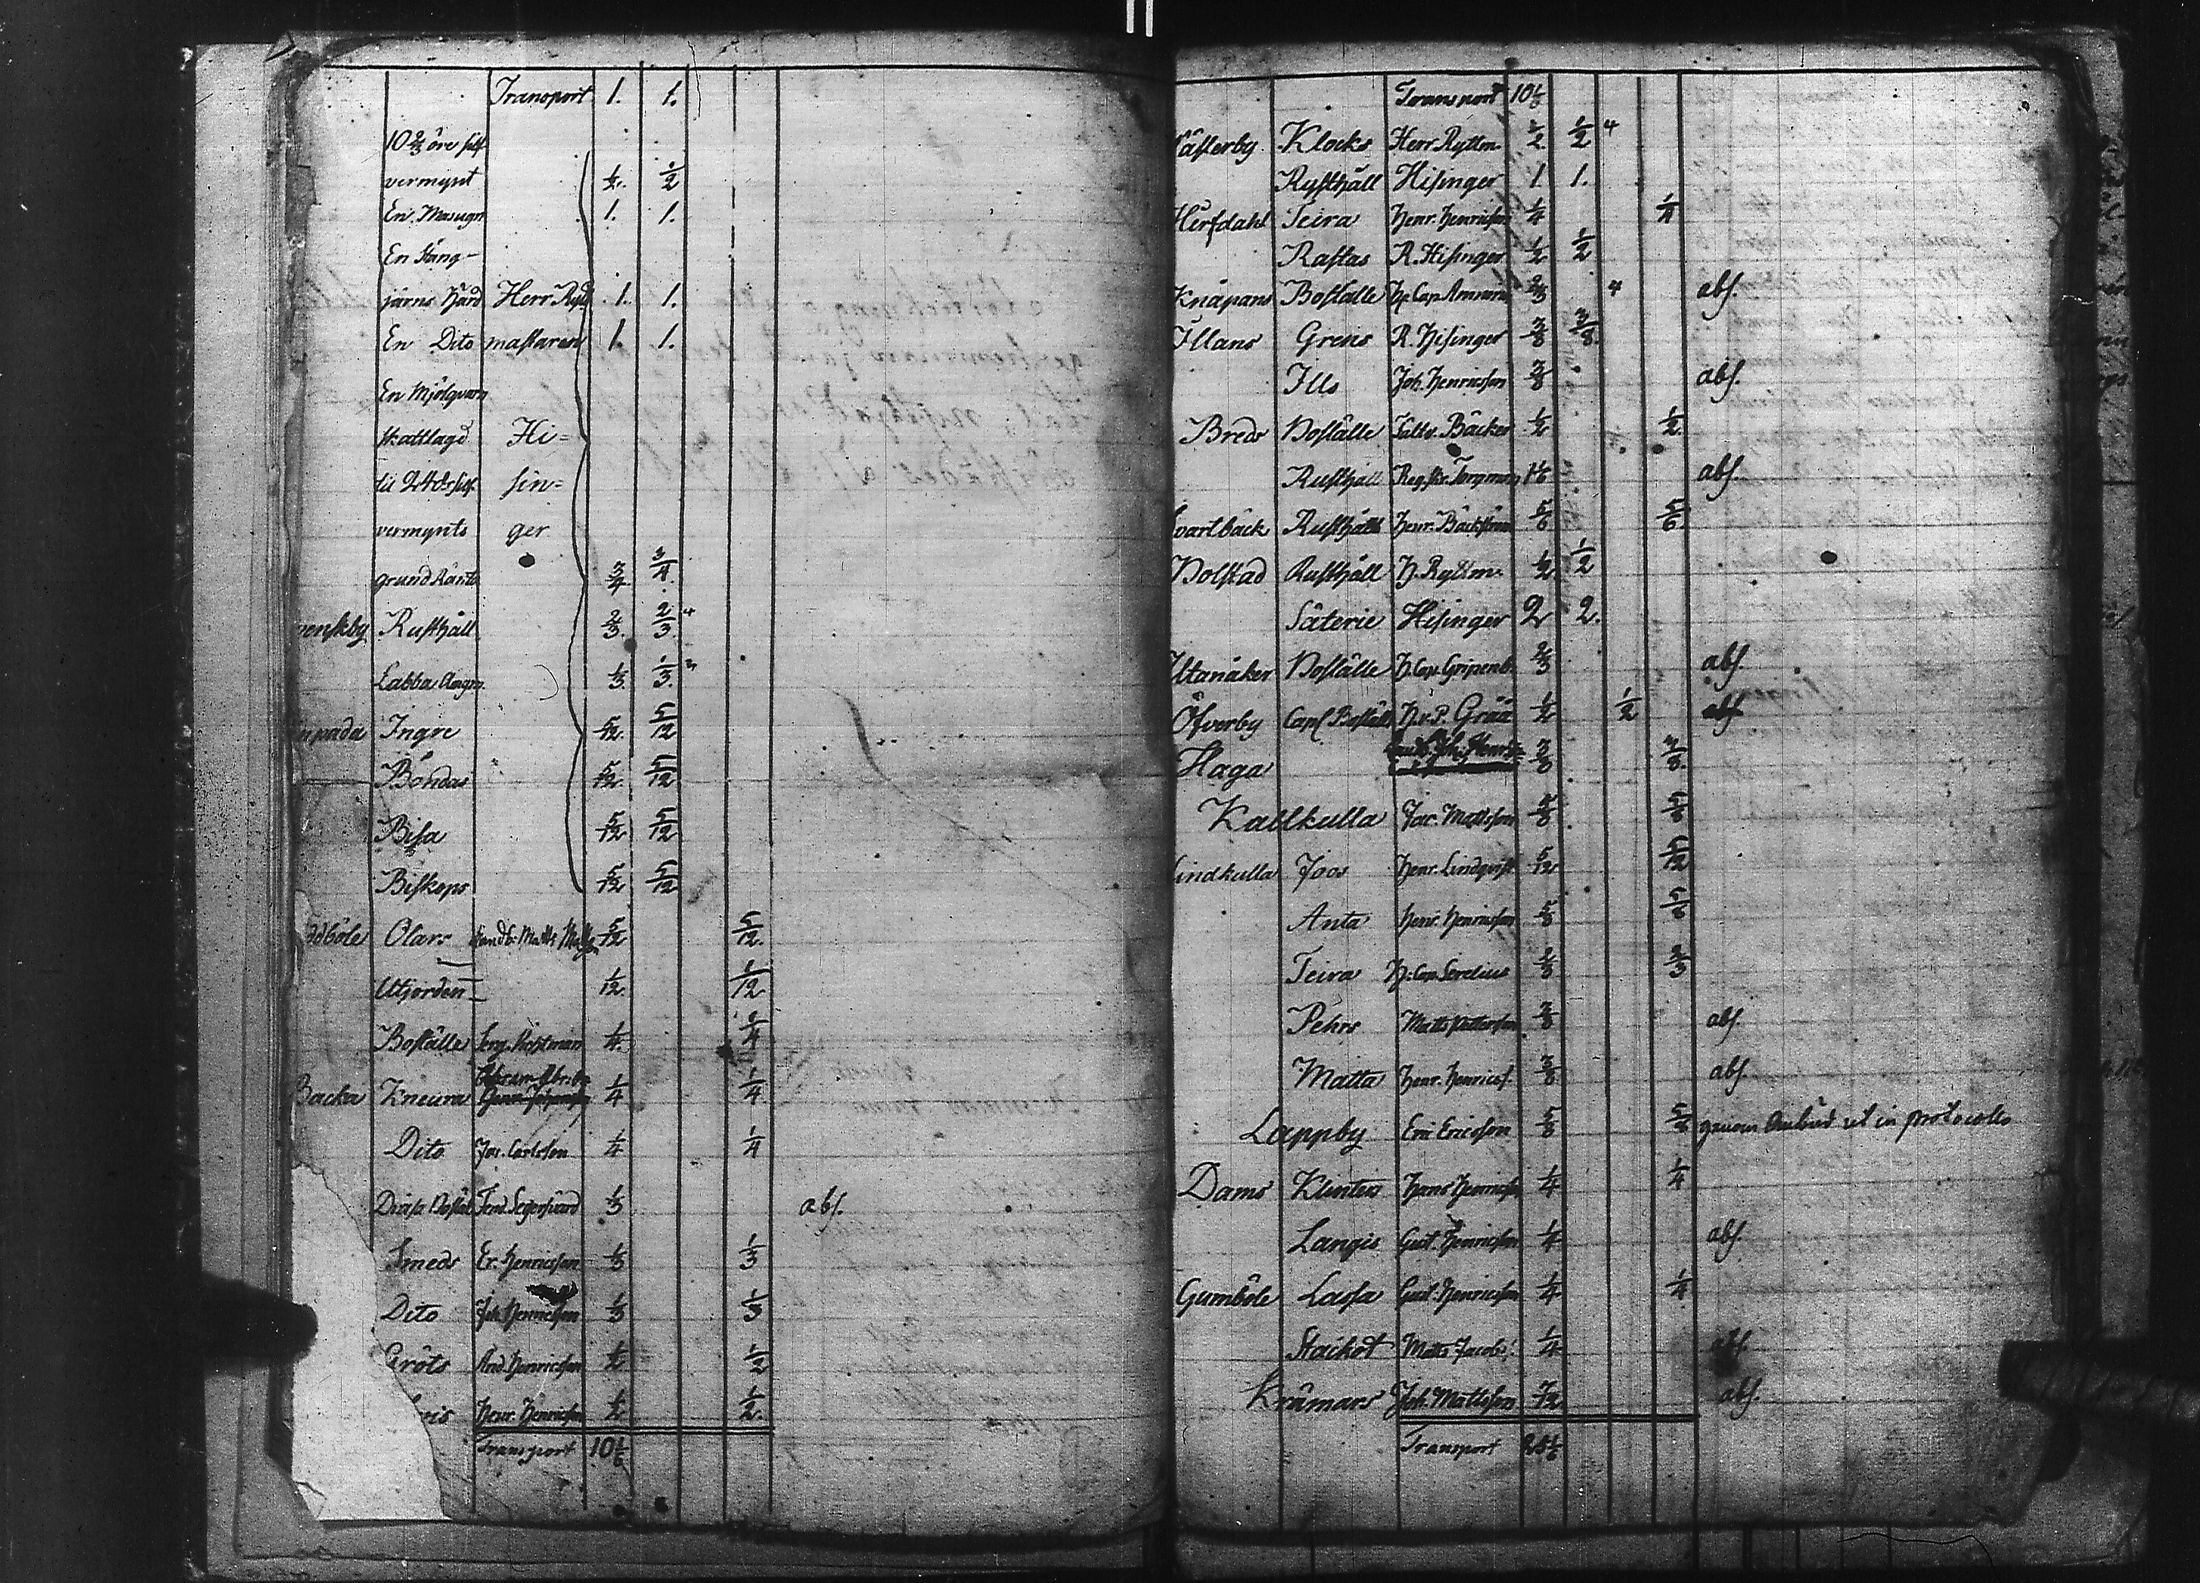 Transport 1. 1.
10 2/3 öre silf.
vermynt 1/2. 1/2
En Masugn 1. 1.
En Stång-
järns Härd Herr Ryt 1. 1.
En Dito mästaren 1. 1.
En Mjölqvarn
skattlagd Hi=
sin=
vermynts ger
grund Ränta 3/4 3/4.
venskby Rusthåll 2/3. 2/3. 4
Labba Augm. 1/3. 1/3.
Ingre 5/12. 5/12
Bondas 5/12. 5/12.
Bisa 5/12 5/12
Biskops 5/12 5/12
ddböle Olars Landb: Matts 5/12 5/12.
Utjorden 1/12. 1/12
Boställe 1/4. 1/4
Backa Kneura Abram 1/4 1/4.
Dito Jac. Carlsson 1/4 1/4
1/3 abs.
Smeds Er. Henricsson 1/3 1/3
Dito Joh. Henricsson 1/3 1/3
Gröts And. Henricsson 1/2 1/2
Henr. Henricsson 1/2 1/2.
Transport 10 1/6
Transport 10 1/6
Västerby Klocks Herr Ryttm. 1/2 1/2 4
Rusthåll Hisinger 1. 1.
Herfdahl Teira Henr. Henricsson 1/4 1/4
Rastas R. Hisinger 1/2 1/2
Knapans Boställe 2/3 4 abs.
Illans Greis R. Hisinger 3/8 3/8.
Ills Joh. Henricsson 3/8 abs.
Breds Boställe Bäcker 1/2 1/2.
Rusthåll 1 1/6 abs.
Svartbäck Rusthåll Henr. Bäckström 5/6 5/6.
Bolstad Rusthåll H. Ryttm. 1/2 1/2
Säterie Hisinger 2 2.
Uttanåker Boställe H. Cap. Gripenb. 2/3 abs.
Öfverby Capl. Boställe H. v. P. Gråå 1/2 1/2 abs
Haga 3/8 3/8.
Kallkulla Jac. Mattsson 5/8 5/8
Lindkulla Joos Henr. Lindqvist 5/12 5/12
Anta Henr. Henricsson 5/8 5/8
Teira H: Cap. 2/3 2/3
Pehrs Matts Pettersson 3/8 abs.
Matta Henr. Henricss. 3/8 abs.
Lappby Eric Ericsson 5/8 5/8 genom Ombud ut in protocollo
Dams Klintus Hans Henricsson 1/4 1/4
Langis Gust. Henricsson 1/4 abs.
Gumböle Lassa Gust. Henricsson 1/4 1/4
Matts Jacobs: 1/4 abs.
Krämars Joh. Mattsson 7/12 abs.
Transport